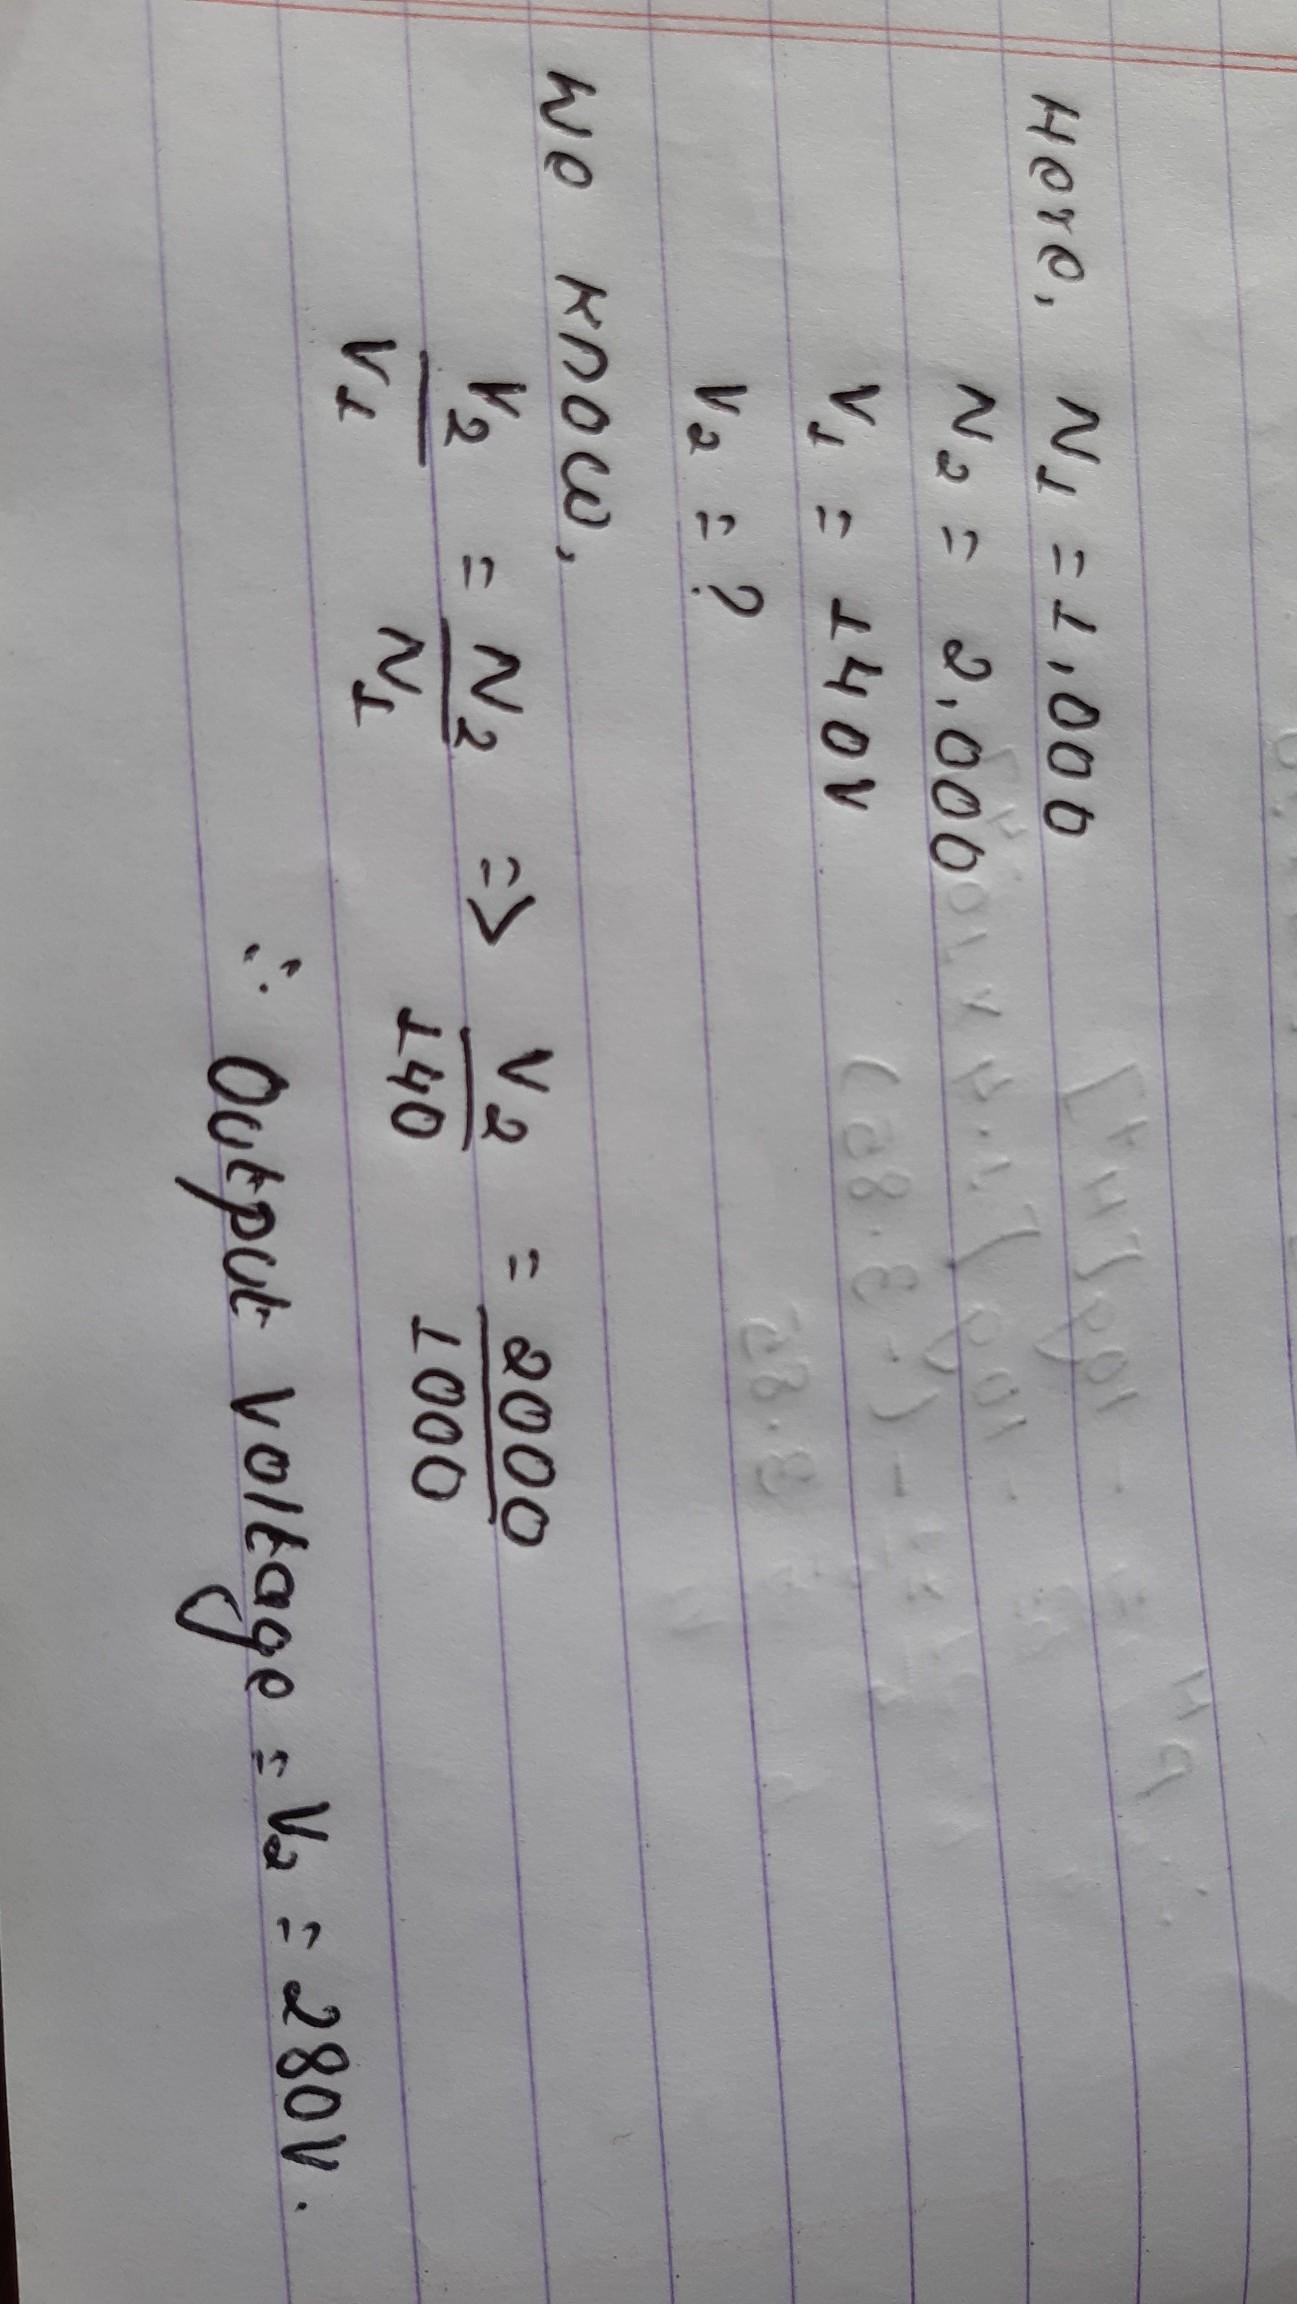 Here, N1 = 1,000
N2 = 2,000
V1 = 140V
V2 = ?
We know,
V2/V1 = N2/N1 => V2/140 = 2000/1000
∴ Output Voltage = V2 = 280V.